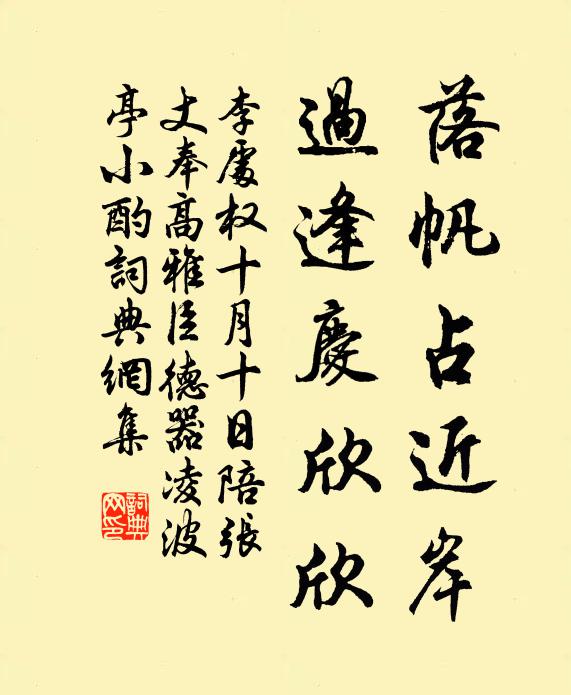 落帆占近岸
過逢慶欣欣
李處权十月十日陪張
丈奉高雅臣德器凌波
亭小酌詞典網集
詞典
网印